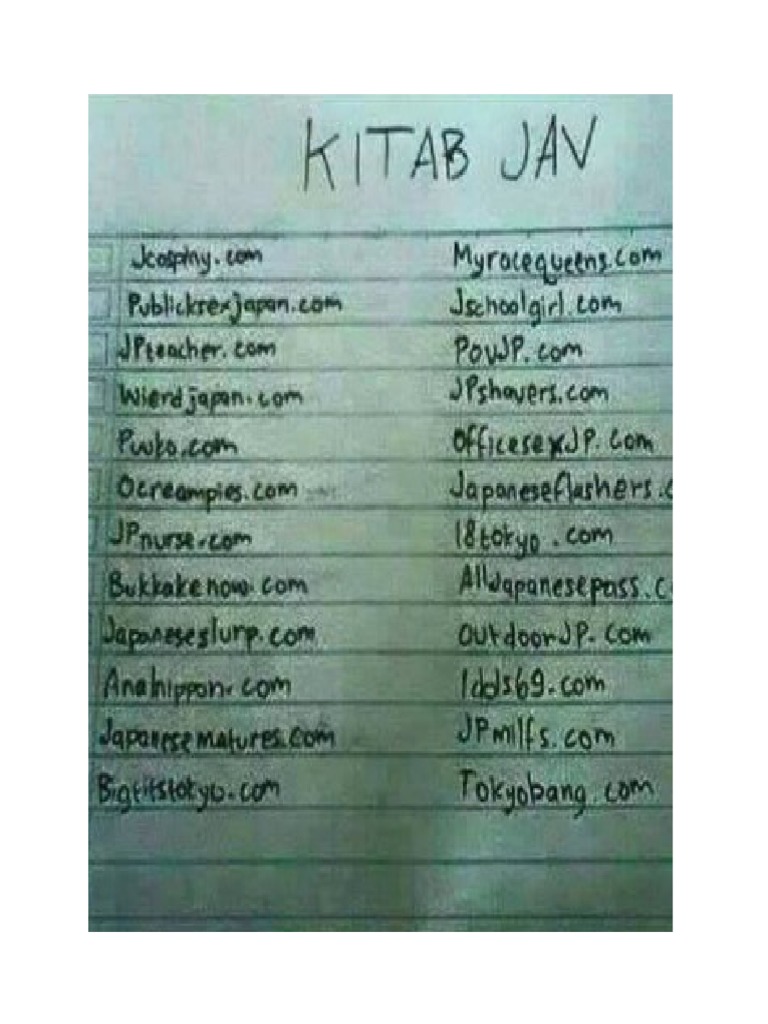 KITAB JAV
Jcosplay.com Myracequeens.com
Publicksexjapan.com Jschoolgirl.com
JPteacher.com PovJP.com
Wierdjapan.com JPshavers.com
OfficesexJP.com
Ocreampies.com Japaneseflashers.c
JPnurse.com 18tokyo.com
Bukkakenow.com AllJapanesepass.c
Japaneseslurp.com OutdoorJP.com
Analnippon.com Idols69.com
Japanesematures.com JPmilfs.com
Bigtitstokyo.com Tokyobang.com